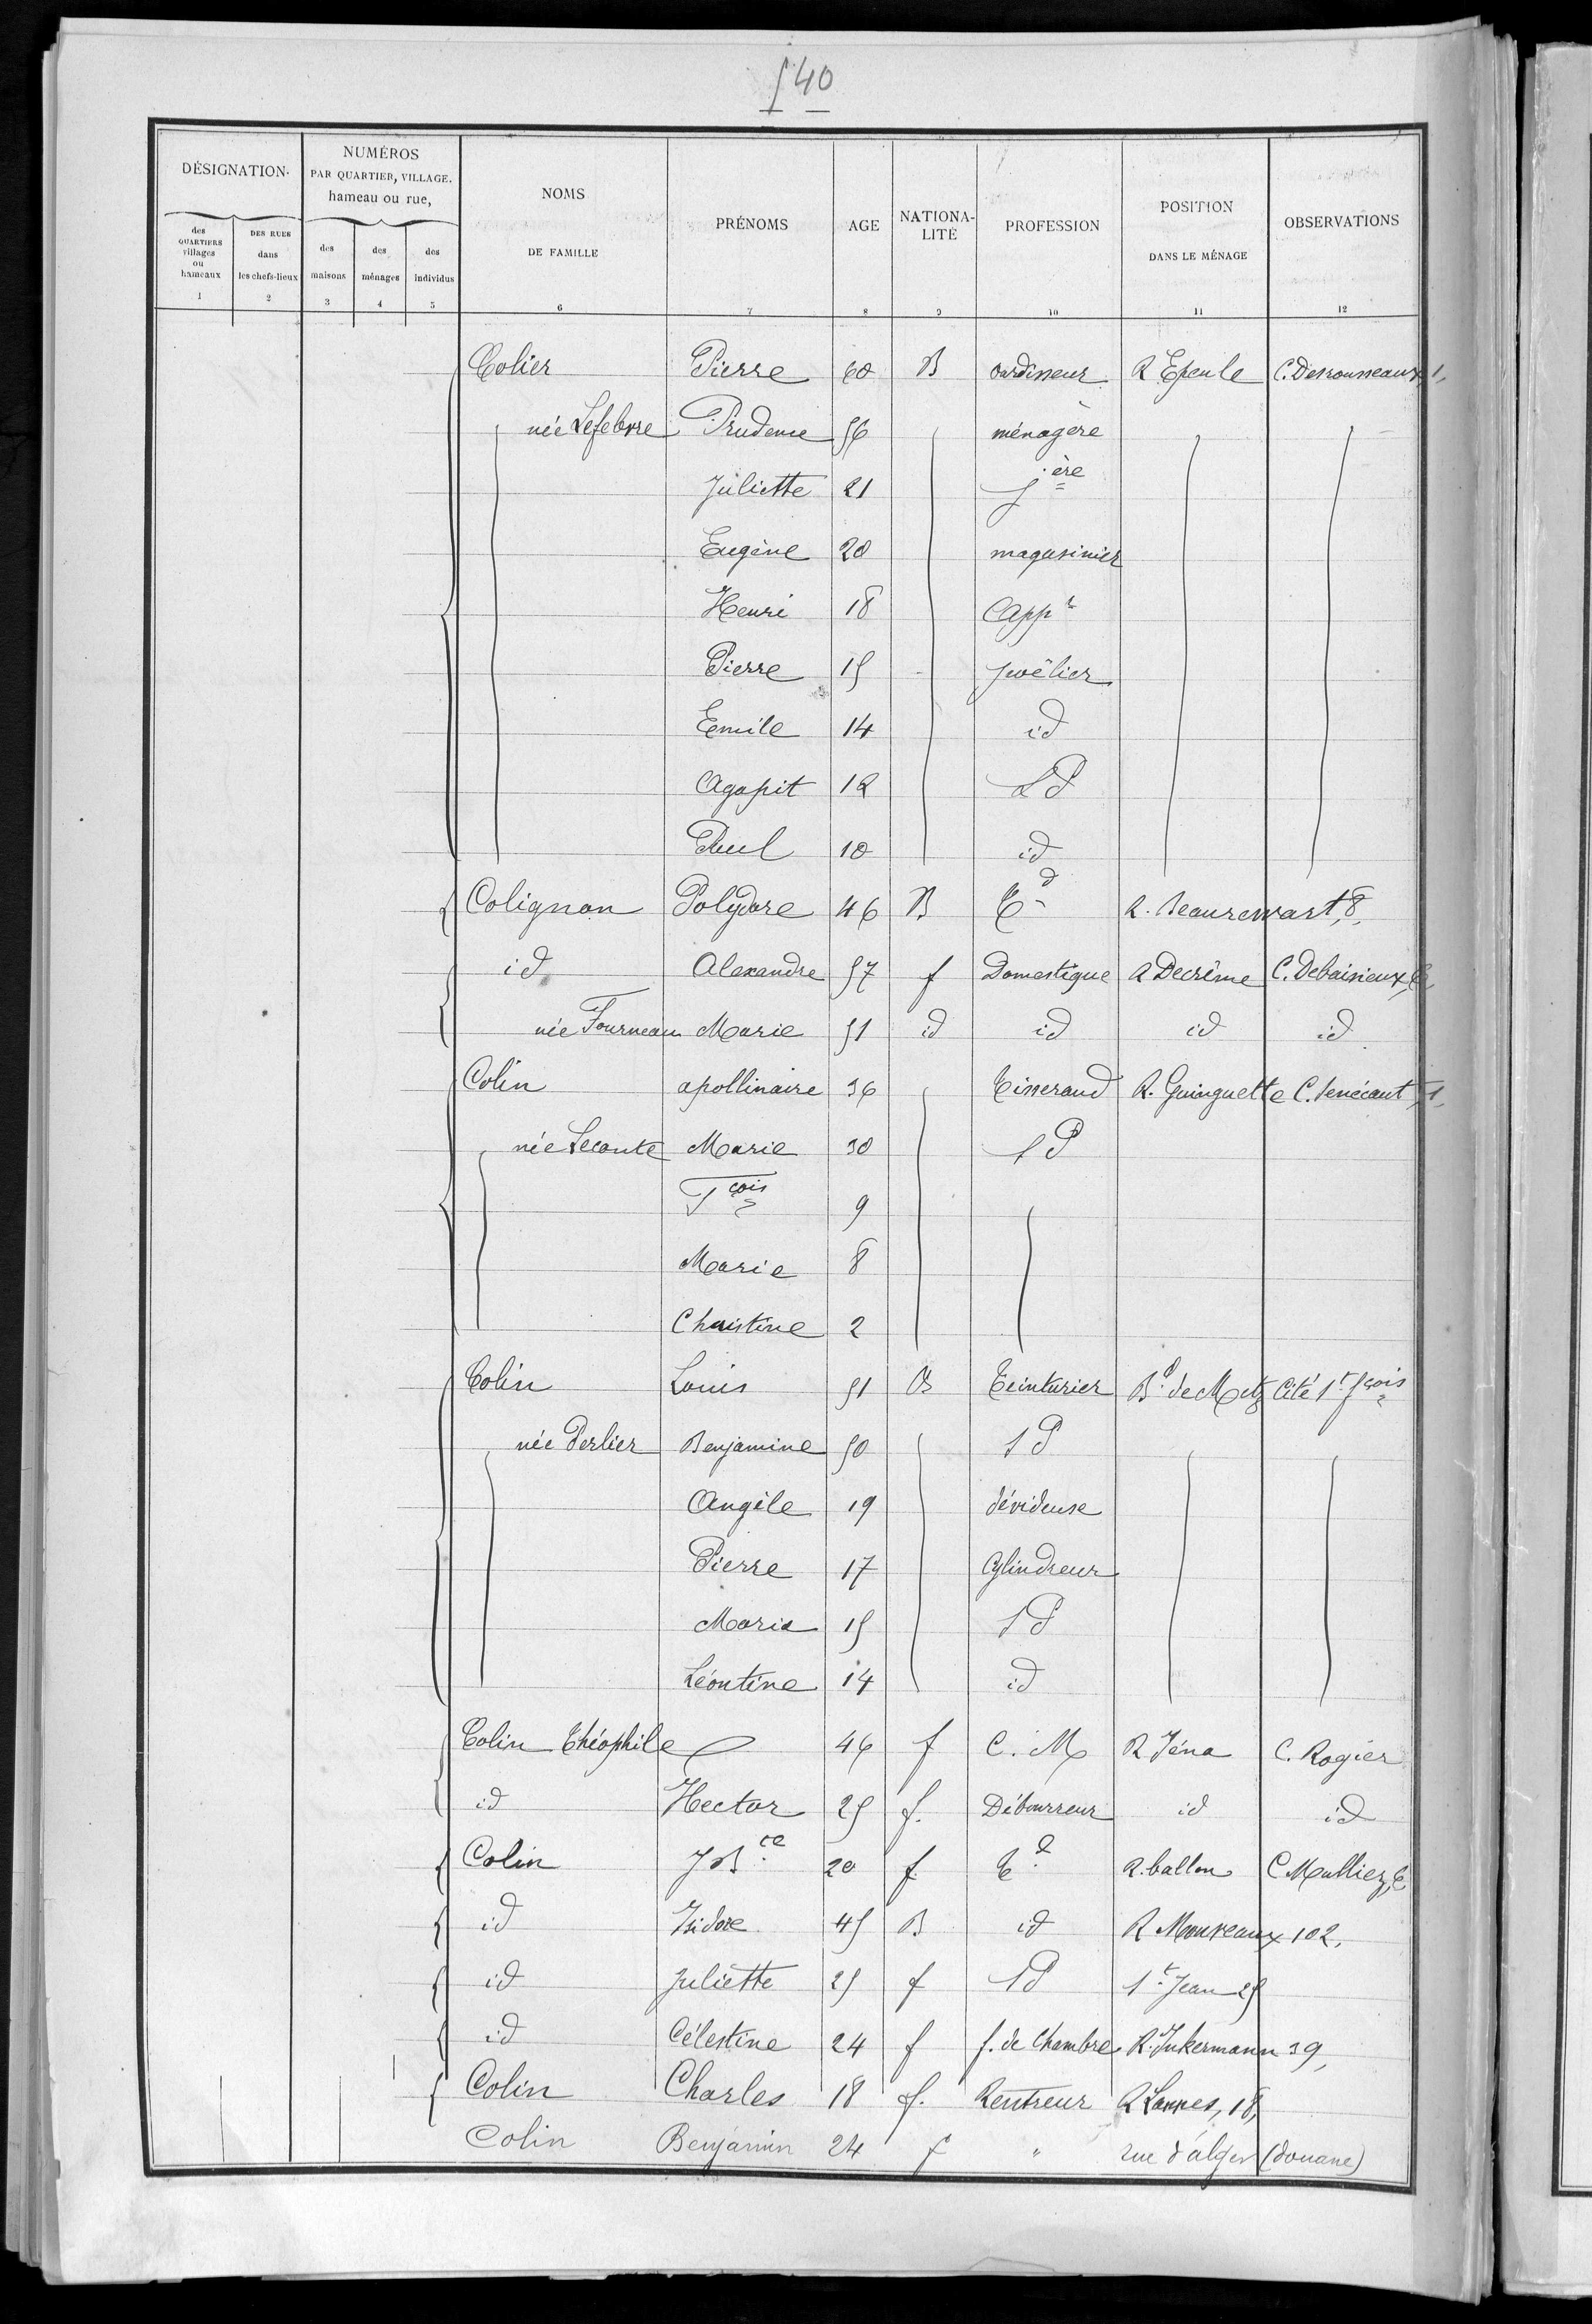 540
DÉSIGNATION
NUMÉROS
PAR QUARTIER, VILLAGE.
hameau ou rue,
des QUARTIERS villages ou hameaux
DES RUES dans les chefs-lieux
des maisons
des ménages
des individus
NOMS
DE FAMILLE
PRÉNOMS
AGE
NATIONA-
LITÉ
PROFESSION
POSITION
DANS LE MÉNAGE
OBSERVATIONS
1 2 3 4 5 6 7 8 9 10 11 12
Colier Pierre 60 B ourdisseur R Epeule C. Desrousseaux, 1,
née Lefebvre Prudence 56 ménagère
Juliette 21 jère
Eugène 20 magasinier
Henri 18 Appr
Pierre 15 poêlier
Emile 14 id
Agapit 12 SP
Paul 10 id
Colignon Polydore 46 B Td R. Beaurewart, 8,
id Alexandre 57 f Domestique R Decrême C. Debaisieux,
née Fourneau Marie 51 id id id id
Colin apollinaire 36 Tisserand R. Guinguette C. Senécaut, 1,
née Leconte Marie 30 SP
Fçois 9
Marie 8
Christine 2
Colin Louis 51 B Teinturier Bd de Metz Cité St fçois
née Perlier Benjamine 50 SP
Angèle 19 dévideuse
Pierre 17 Cylindreur
Maria 15 SP
Léontine 14 id
Colin Théophile 46 f C. M R Jéna C. Rogier
id Hector 25 f. Débourreur id id
Colin JBte 20 f Td R. ballon C Mulliez,
id Isidore 45 B id R Mouveaux 102,
id Juliette 25 f SP St Jean 25
id Célestine 24 f f. de Chambre R. Inkermann 39,
Colin Charles 18 f. Rentreur R Lannes, 18,
Colin Benjamin 24 f " rue d'alger (douane)